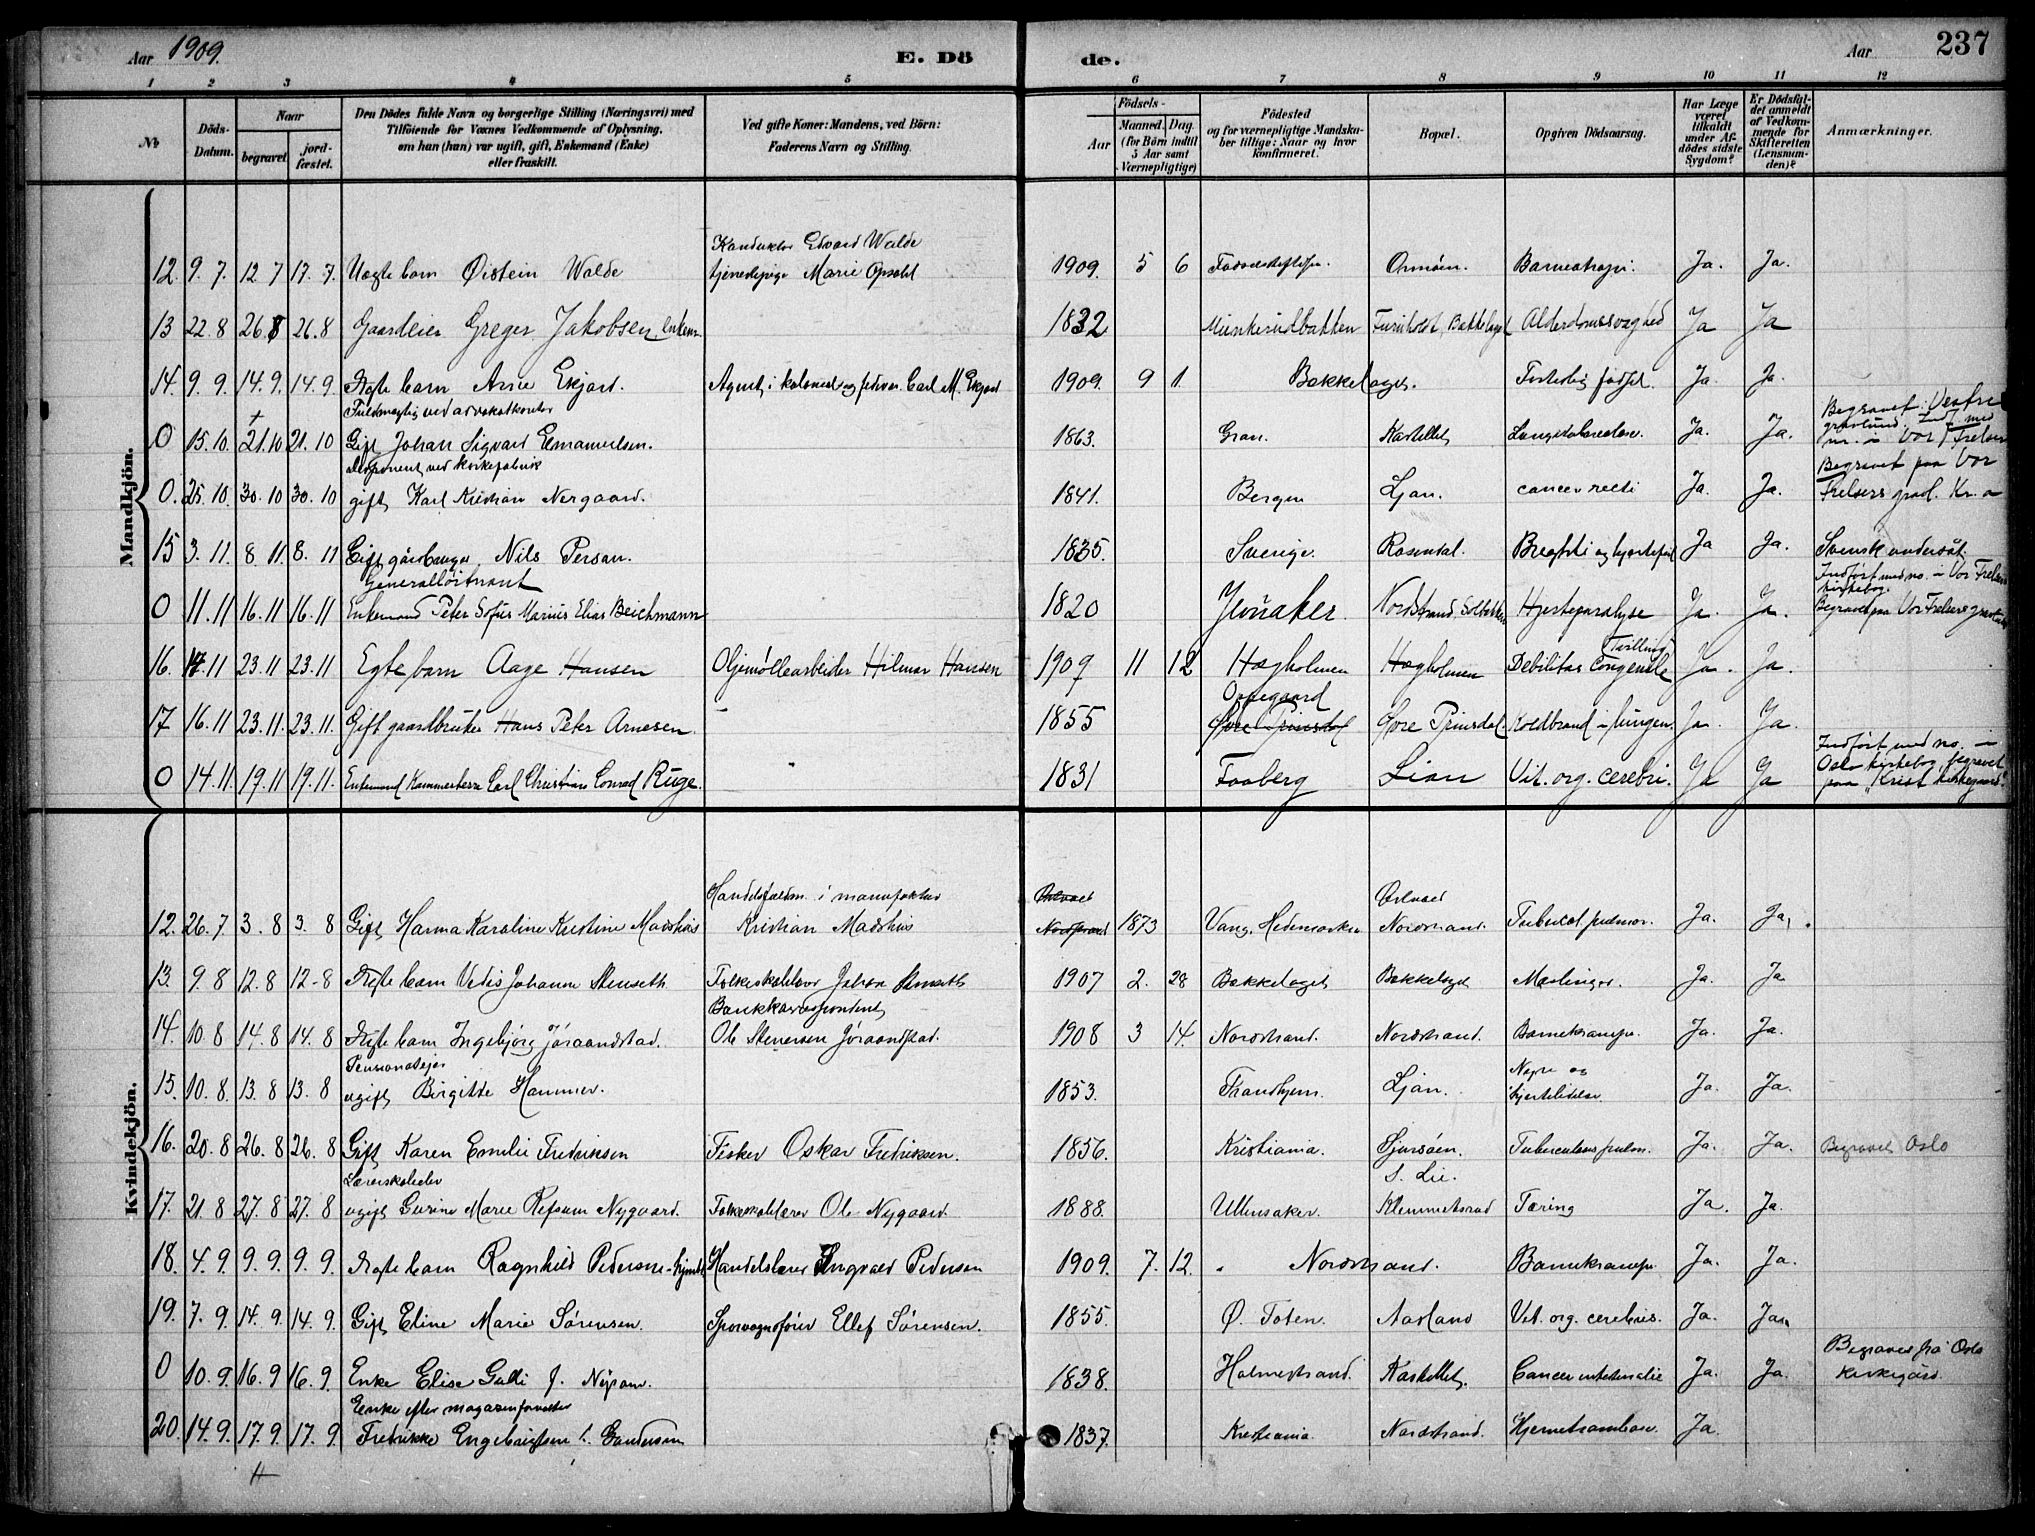 Aar 1909. E. Dö de. Aar 237
1 2 3 4 5 6 7 8 9 10 11 12
No
Döds-Datum.
Naar
begravet.
jord-fæstet.
Den Dödes fulde Navn og borgerlige Stilling (Næringsvei) med
Tilföiende for Voxnes Vedkommende af Oplysning,
om han (hun) var ugift, gift, Enkemand (Enke)
eller fraskilt.
Ved gifte Koner: Mandens, ved Börn:
Faderens Navn og Stilling.
Födsels-
Aar
Maaned. Dag.
(for Börn indtil
5 Aar samt
Værnepligtige)
Födested
og for værnepligtige Mandska-
ber tillige: Naar og hvor
konfirmeret.
Bopæl.
Opgiven Dödsaarsag.
Har Læge
været
tilkaldt
under Af-
dödes sidste
Sygdom?
Er Dödsfal-
det anmeldt
af Vedkom-
mende for
Skifteretten
(Lensman-
den)?
Anmærkninger.
Mandkjön.
Konduktør Edvard Walde
12. 9. 7. 12 7 17. 7. Uægte barn Øistein Walde tjenestepige Marie Opsahl 1909. 5 6 Ormøen. Ja. Ja.
13 22. 8 26. 8 26. 8 Gaardeier Greger Jakobsen, enkem. 1832 Bækkelaget Alderdomssvaghed Ja Ja
14. 9. 9. 14. 9. 14. 9. Ægte barn Arne Ekjord. Agent i kolonial og fedev. Carl M. Ekjord 1909. 9 1. Bækkelaget. For tidlig fødsel. Ja. Ja.
Fuldmægtig ved advokatkontor
0 15. 10. 21. 10 21. 10 Gift Johan Sigvard Emanuelsen. 1863. Gran. Kastellet Ja. Ja. Begravet Vestre gravlund.
Disponent ved korkefabrik
0. 25. 10. 30. 10 30. 10 gift Karl Kristian Norgaard. 1841. Bergen Ljan. cancer recti Ja. Ja. Begravet paa Vor Frelsers gravl. Kr.a
15 3. 11. 8. 11 8. 11 Gift Nils Person. 1835. Sverige. Rosendal. Ja Ja. Svensk undersåt.
Generalløitnant
0 11. 11 16. 11 16. 11 Enkemand Peter Sofus Marius Elias Beichmann 1820 Jevnaker. Nordstrand, Solbakken Hjerteparalyse Ja. Ja. Indført med no. i Vor Frelsers kirkebog.
Begravet paa Vor Frelsers gravlund
16. 17. 11 23. 11 23. 11 Egte barn Aage Hansen Oljemøllearbeider Hilmar Hansen 1909 11 12 Hagholmen Hagholmen Tvilling Debilitas congenita Ja. Ja.
17 16. 11 23. 11. 23. 11. Gift gaardbruker Hans Peter Arnesen. 1855 Oppegaard Øvre Prinsdal Øvre Prinsdal. Koldbrand i lungen. Ja. Ja.
0 14. 11 19. 11 19. 11. Enkemand Kammerherre Carl Christian Conrad Ruge. 1831 Faaberg Lian Vit. org. cerebri. Ja Ja Indført med no. i
Oslo kirkebog, begravet
paa "Krist kirkegaard"
Kvindekjön.
12. 26. 7 3. 8 3. 8 Gift Hanna Karoline Kristine Madshus Kristian Madshus Nordstrand 1873 Vang. Hedemarken Nordstrand. Tubercul. pulmon. Ja. Ja.
13. 9. 8 12. 8 12-8 Ægte barn Vedis Johanne Stenseth Folkeskolelærer Johan Stenseth 1907 2. 28 Bækkelaget Bækkelaget Mæslinger. Ja. Ja
Bankkorrespondent
14. 10. 8 14. 8 14. 8 Ægte barn Ingebjørg Jøraandstad. Ole Stenersen Jøraandstad. 1908 3 14. Nordstrand. Nordstrand. Barnekrampe. Ja. Ja.
15. 10. 8. 13. 8 13. 8 ugift Birgitte Hammer. 1853. Trondhjem. Ljan. Nyre og
hjertelidelse. Ja. Ja.
16. 20. 8 26. 8 26. 8 Gift Karen Emilie Fredriksen Fisker Oskar Fredriksen. 1856. Kristiania. Sjursøen. Tuberculosis pulm. Ja. Ja. Begravet Oslo
17. 21. 8 27. 8 27. 8 ugift Gurine Marie Refsum Nygaard. Folkeskolelærer Ole Nygaard. 1888. Ullensaker. S. Lie. Klemmetsrud Tæring Ja. Ja.
18. 4. 9. 9. 9. 9. 9 Ægte barn Ragnhild Pedersen Handelslærer Ingvald Pedersen 1909. 7. 12. Nordstrand. Barnekrampe Ja. Ja.
19. 7. 9. 14. 9 14. 9 Gift Eline Marie Sørensen. Sporvognsfører Ellef Sørensen. 1855. Ø. Toten. Aasland Vit. org. cerebri. Ja. Ja.
0 10. 9. 16. 9 16. 9 Enke Elise Galli f. 1838. Holmestrand. Kastellet. Cancer intestinalis Ja. Ja. Begravet på Oslo
kirkegård.
Enke efter magasinforvalter
20. 14. 9. 17. 9 17. 9 Fredrikke Engebrigtsen f. Gundersen 1837. Kristiania Nordstrand. Ja.